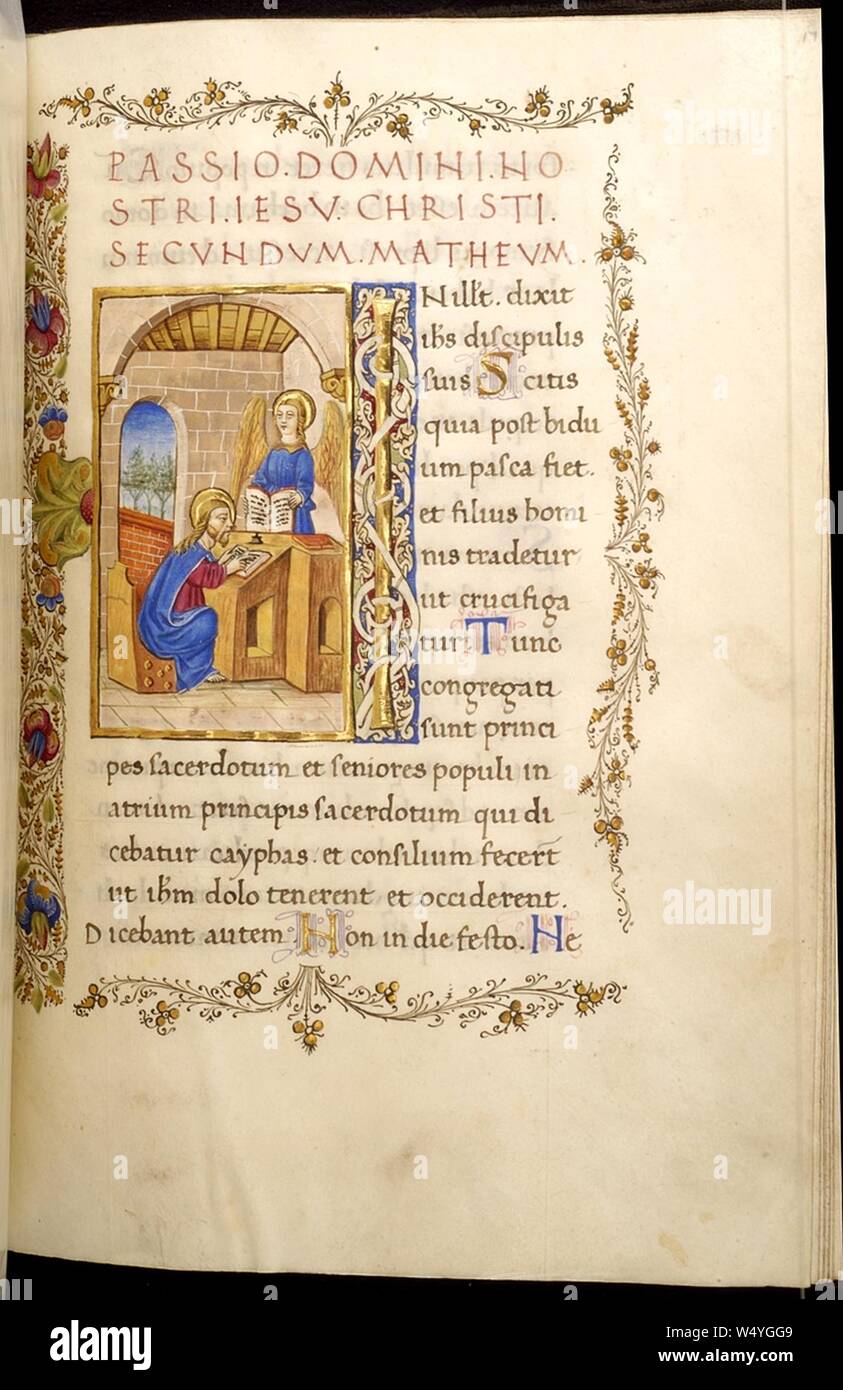 PASSIO.DOMINI.NO
STRI.IESV.CHRISTI.
SECVNDVM.MATHEVM.
IN ill't. dixit
ihs discipulis
suis Scitis
quia post bidu
um pasca fiet.
et filius homi
nis tradetur
ut crucifiga
tur. Tunc
congregati
sunt princi
pes sacerdotum et seniores populi in
atrium principis sacerdotum qui di
cebatur cayphas. et consilium fecert
ut ihm dolo tenerent et occiderent.
Dicebant autem. Non in die festo. Ne
alamy
alamy
alamy
Image ID: W4YGG9
www.alamy.com